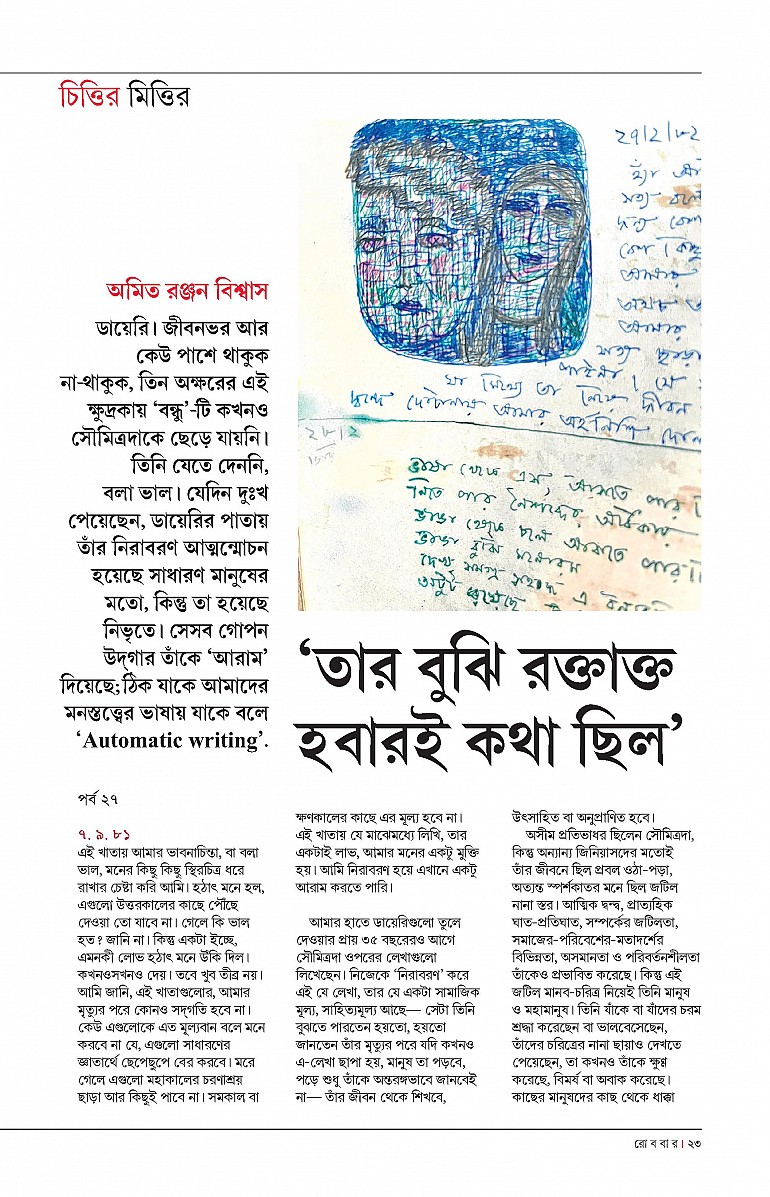 চিত্তির মিত্তির
অমিত রঞ্জন বিশ্বাস
ডায়েরি। জীবনভর আর
কেউ পাশে থাকুক
না-থাকুক, তিন অক্ষরের এই
ক্ষুদ্রকায় ‘বন্ধু’-টি কখনও
সৌমিত্রদাকে ছেড়ে যায়নি।
তিনি যেতে দেননি,
বলা ভাল। যেদিন দুঃখ
পেয়েছেন, ডায়েরির পাতায়
তাঁর নিরাবরণ আত্মন্মোচন
হয়েছে সাধারণ মানুষের
মতো, কিন্তু তা হয়েছে
নিভৃতে। সেসব গোপন
উদ্‌গার তাঁকে ‘আরাম’
দিয়েছে; ঠিক যাকে আমাদের
মনস্তত্ত্বের ভাষায় যাকে বলে
‘Automatic writing’.
‘তার বুঝি রক্তাক্ত
হবারই কথা ছিল’
পর্ব ২৭
৭. ৯. ৮১
এই খাতায় আমার ভাবনাচিন্তা, বা বলা
ভাল, মনের কিছু কিছু স্থিরচিত্র ধরে
রাখার চেষ্টা করি আমি। হঠাৎ মনে হল,
এগুলো উত্তরকালের কাছে পৌঁছে
দেওয়া তো যাবে না। গেলে কি ভাল
হত? জানি না। কিন্তু একটা ইচ্ছে,
এমনকী লোভ হঠাৎ মনে উঁকি দিল।
কখনওসখনও দেয়। তবে খুব তীব্র নয়।
আমি জানি, এই খাতাগুলোর, আমার
মৃত্যুর পরে কোনও সদ্‌গতি হবে না।
কেউ এগুলোকে এত মূল্যবান বলে মনে
করবে না যে, এগুলো সাধারণের
জ্ঞাতার্থে ছেপেছুপে বের করবে। মরে
গেলে এগুলো মহাকালের চরণাশ্রয়
ছাড়া আর কিছুই পাবে না। সমকাল বা
ক্ষণকালের কাছে এর মূল্য হবে না।
এই খাতায় যে মাঝেমধ্যে লিখি, তার
একটাই লাভ, আমার মনের একটু মুক্তি
হয়। আমি নিরাবরণ হয়ে এখানে একটু
আরাম করতে পারি।
আমার হাতে ডায়েরিগুলো তুলে
দেওয়ার প্রায় ৩৫ বছরেরও আগে
সৌমিত্রদা ওপরের লেখাগুলো
লিখেছেন। নিজেকে ‘নিরাবরণ’ করে
এই যে লেখা, তার যে একটা সামাজিক
মূল্য, সাহিত্যমূল্য আছে— সেটা তিনি
বুঝতে পারতেন হয়তো, হয়তো
জানতেন তাঁর মৃত্যুর পরে যদি কখনও
এ-লেখা ছাপা হয়, মানুষ তা পড়বে,
পড়ে শুধু তাঁকে অন্তরঙ্গভাবে জানবেই
না— তাঁর জীবন থেকে শিখবে,
উৎসাহিত বা অনুপ্রাণিত হবে।
অসীম প্রতিভাধর ছিলেন সৌমিত্রদা,
কিন্তু অন্যান্য জিনিয়াসদের মতোই
তাঁর জীবনে ছিল প্রবল ওঠা-পড়া,
অত্যন্ত স্পর্শকাতর মনে ছিল জটিল
নানা স্তর। আত্মিক দ্বন্দ্ব, প্রাত্যহিক
ঘাত-প্রতিঘাত, সম্পর্কের জটিলতা,
সমাজের-পরিবেশের-মতাদর্শের
বিভিন্নতা, অসমানতা ও পরিবর্তনশীলতা
তাঁকেও প্রভাবিত করেছে। কিন্তু এই
জটিল মানব-চরিত্র নিয়েই তিনি মানুষ
ও মহামানুষ। তিনি যাঁকে বা যাঁদের চরম
শ্রদ্ধা করেছেন বা ভালবেসেছেন,
তাঁদের চরিত্রের নানা ছায়াও দেখতে
পেয়েছেন, তা কখনও তাঁকে ক্ষুণ্ণ
করেছে, বিমর্ষ বা অবাক করেছে।
কাছের মানুষদের কাছ থেকে ধাক্কা
রো ব বা র। ২৩